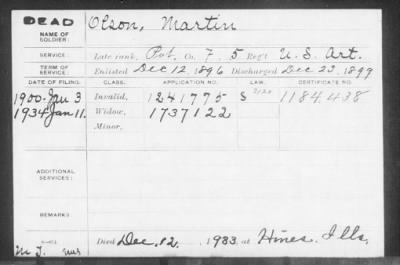 DEAD
NAME OF SOLDIER: Olson, Martin
SERVICE: Late rank, Pvt. Co. F, 5 Reg't U.S. Art.
TERM OF SERVICE: Enlisted Dec 12, 1896 Discharged Dec 23, 1899
DATE OF FILING. CLASS. APPLICATION NO. LAW. CERTIFICATE NO.
1900-Jan 3 Invalid, 1241775 S 1184,438
1934 Jan 11. Widow, 1737122
Minor,
ADDITIONAL SERVICES:
REMARKS:
Died Dec. 12. 1933. at Hines. Ills.